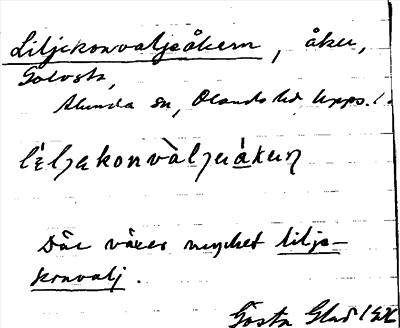 Liljekonvaljeåkern, åker,
Golvsta,
Alunda sn, Olands hd, Upps. l.
lìljakonvàljuåkuṇ
Där växer mycket lilje-
konvalj.
Gösta